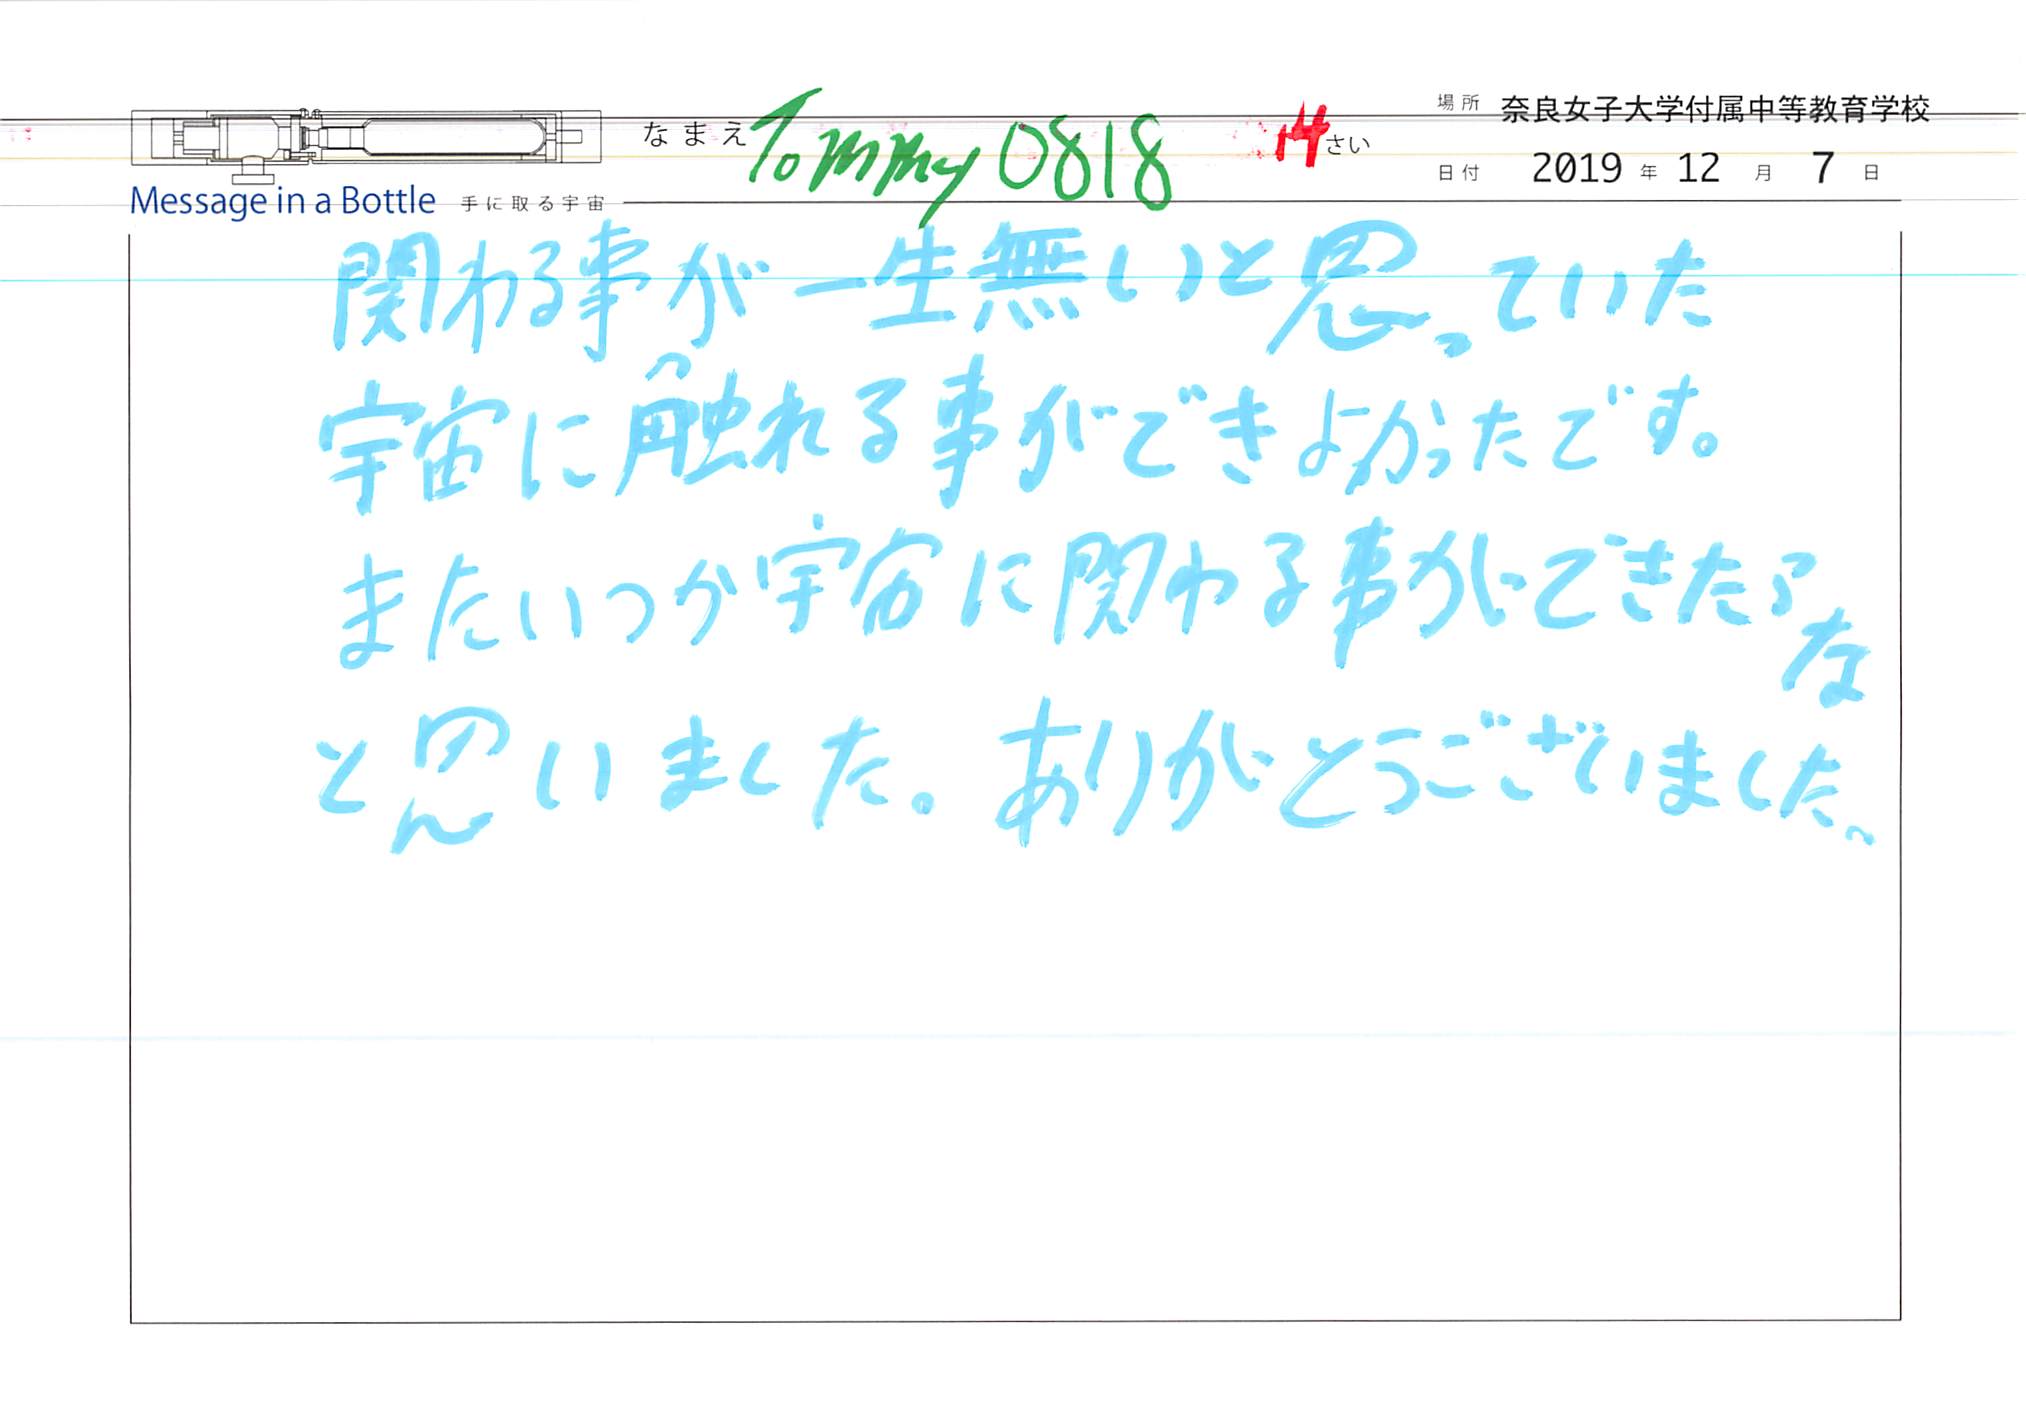 場所 奈良女子大学付属中等教育学校
なまえ Tommy 0818 14 さい
日付 2019 年 12 月 7 日
Message in a Bottle 手に取る宇宙
関わる事が一生無いと思っていた
宇宙に触れる事ができよかったです。
またいつか宇宙に関わる事ができたらな
と思いました。ありがとうございました。